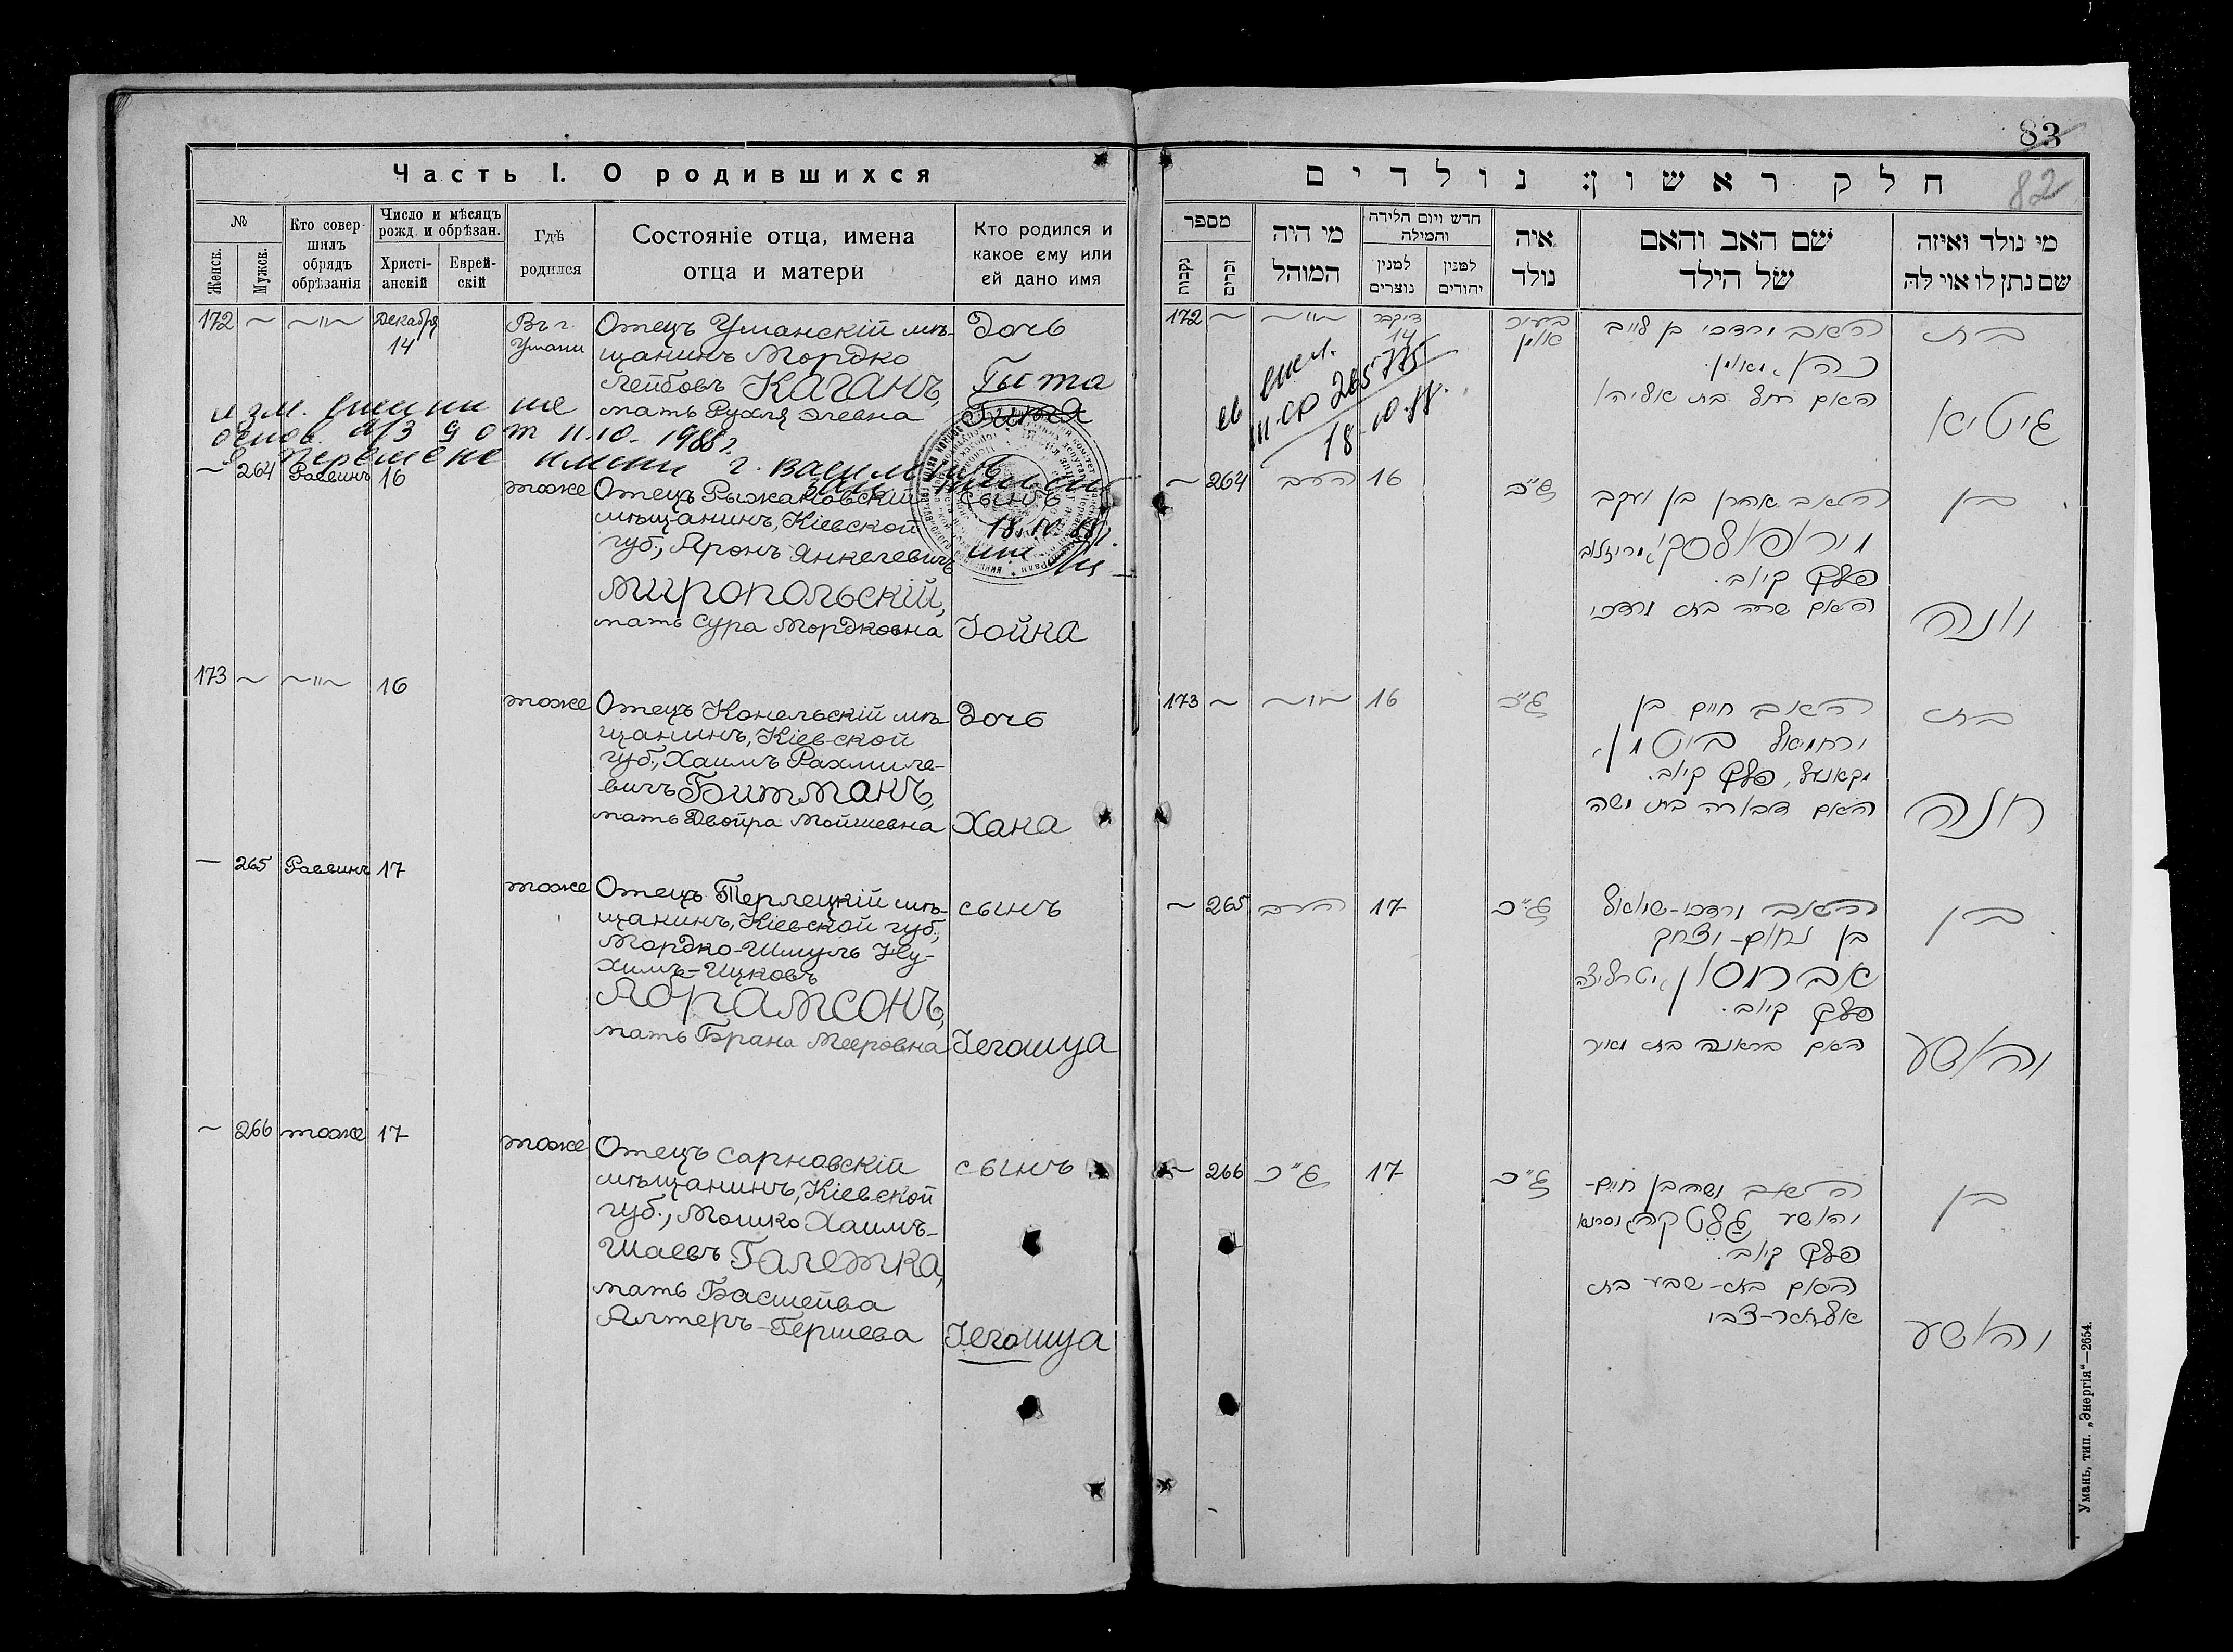 83
82
Часть I. О родившихся
№
Женск.
Мужск.
Кто совер-
шилъ
обрядъ
обрѣзанія
Число и мѣсяцъ
рожд. и обрѣзан.
Христі-
анскій
Еврей-
скій
Гдѣ
родился
Состояніе отца, имена
отца и матери
Кто родился и
какое ему или
ей дано имя
172 ~ ~"~ Декабря
14
Въ г.
Умани
Отецъ Уманскій мѣ-
щанинъ Мордко
Лейбовъ Каганъ,
мать Рухля Элевна
Дочь
Гыта
Гитя
изм.
основ. а/з 9 от 11.10.1988г.
о перемене имени г.
18.10.88г.
~ 264 Раввинъ 16
тоже
Отецъ Рыжановскій
мѣщанинъ, Кіевской
губ., Аронъ Янкелевичъ
Миропольскій,
мать Сура Мордковна
сынъ
Іойна
173 ~ ~"~ 16
тоже
Отецъ Конельскій мѣ-
щанинъ, Кіевской
губ., Хаимъ Рахмиле-
вичъ Битманъ,
мать Двойра Мойшевна
Дочь
Хана
— 265 Раввинъ 17
тоже
Отецъ Терлецкій мѣ-
щанинъ, Кіевской губ.,
Мордко-Шмуль Ну-
химъ-Ицковъ
Абрамсонъ,
мать Брана Мееровна
сынъ
Іегошуа
~ 266 тоже 17
тоже
Отецъ Сарновскій
мѣщанинъ, Кіевской
губ., Мошко Хаимъ-
Шаевъ Галетка,
мать Басшейва
Алтеръ-Гершева
сынъ
Іегошуа
חלק ראשון: נולדים
מספר
נקבות
זכרים
מי היה
המוהל
חדש ויום הלידה
והמילה
למנין
נוצרים
למנין
יהודים
איה
נולד
שם האב והאם
של הילד
מי נולד ואיזה
שם נתן לו או לה
172 ~ ~"~ דיקבר
14
בעיר
אומן
האב מרדכי בן לייב
כהן, מאומן.
האם רחל בת אליהו
בת
גיטיא
18.10.88.
~ 264 הרב 16
ג"כ
האב אהרן בן יעקב
מיראפאלסקי
פלך קיוב.
האם שרה בת מרדכי
בן
יונה
173 ~ ~"~ 16
ג"כ
האב חיים בן
ירחמיאל ביטמן,
מקאנעל, פלך קיוב.
האם דבורה בת משה
בת
חנה
~ 265 הרב 17
ג"כ
האב מרדכי-שמואל
בן נחום-יצחק
אברמסון,
פלך קיוב.
האם בראנה בת מאיר
בן
יהושע
~ 266 ג"כ 17
ג"כ
האב משה בן חיים-
יהושע
פלך קיוב.
האם בת-שבע בת
אלתר-צבי
בן
יהושע
Умань, тип. „Энергія"—2654.